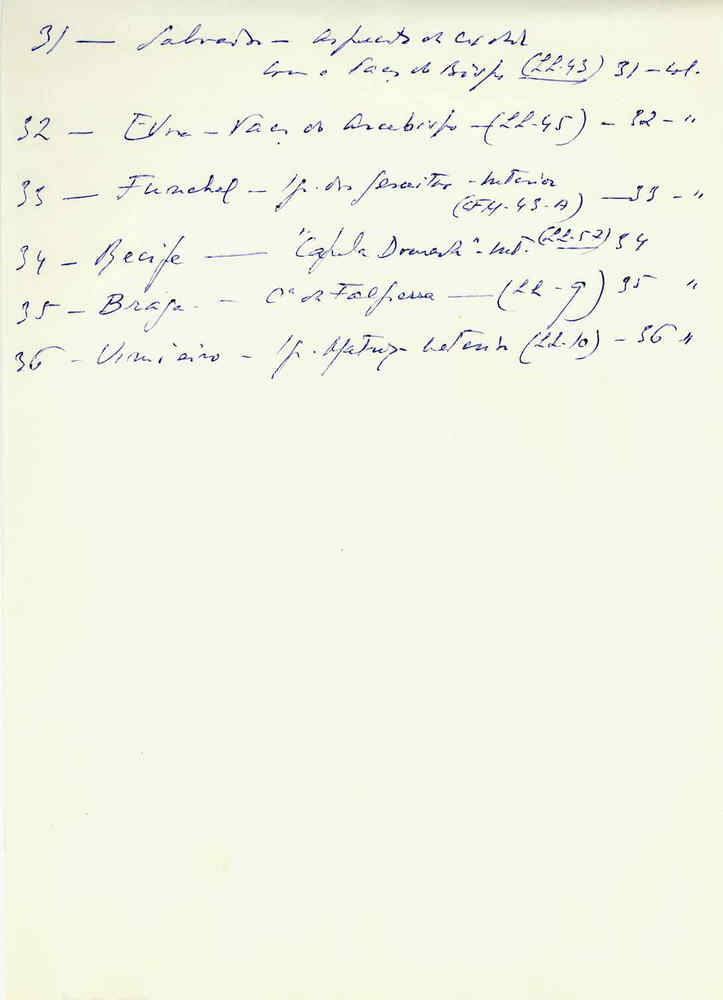 31 — Salvador — aspecto da cidade
com o Paço do Bispo (LL-43) 31 – col.
32 — Évora – Paço do Arcebispo – (LL-45) – 32 – "
33 — Funchal – Ig. dos Jesuitas – Interior
(CFM-43-A) — 33 – "
34 – Recife — "Capela Dourada" – Int. (LL-57) 34
35 – Braga – Cª da Falperra — (LL-9) 35 "
36 – Vimieiro – Ig. Matriz – Interior (LL-10) – 36 "